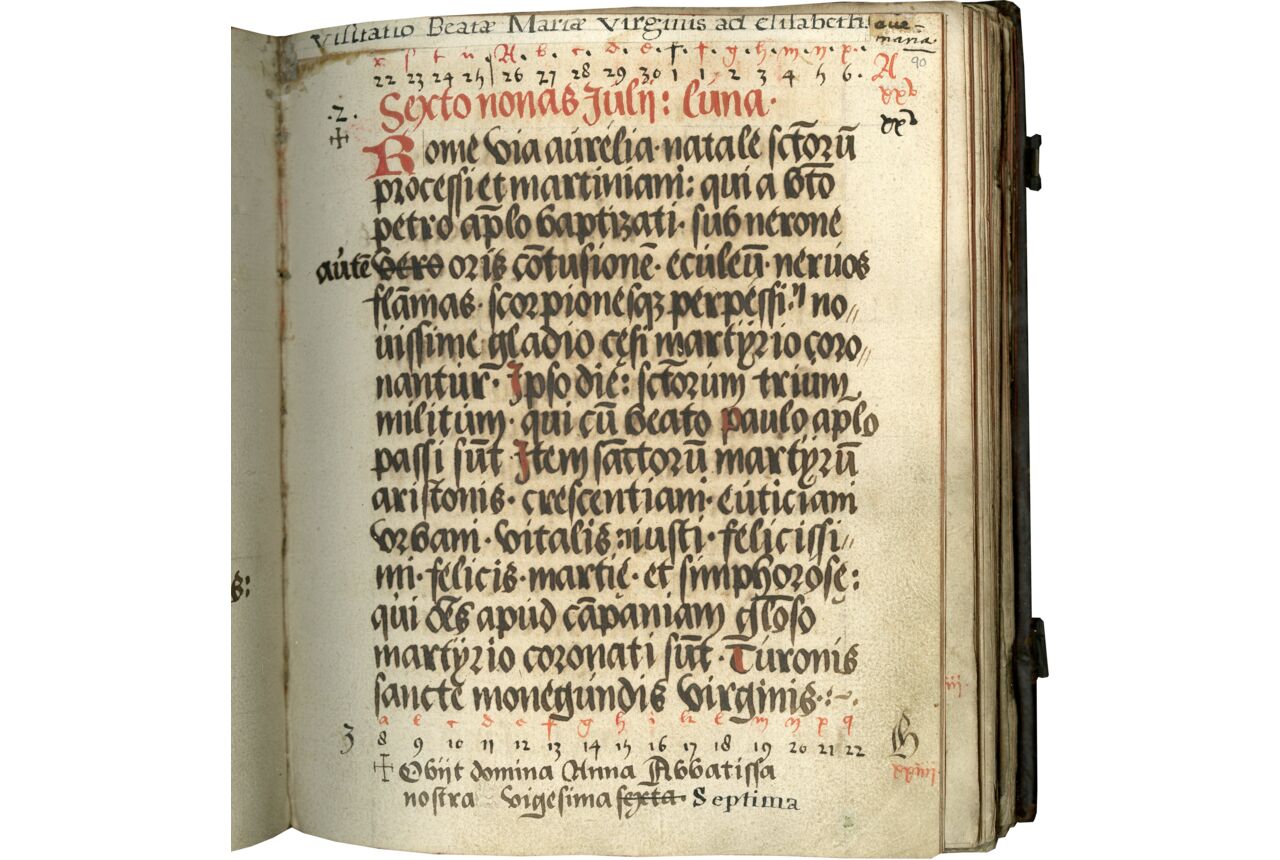 Visitatio Beatæ Mariæ Virginis ad elisabeth. aue
maria.
r ſ t u A. b. c. d. e. f. f. g. h. m. n. p. A 90
22 23 24 25 26 27 28 29 30 1 1 2 3 4 5 6.
.2. Sexto nonas Julij: luna. xxv
Rome via aurelia· natale sctorū xxv
processi et martiniani: qui a bto
petro aplo baptizati· sub nerone
autē vero oris cōtusionē· eculeū· neruos
flāmas· scorpionesq; perpessi· no//
uissime gladio cęsi martyrio coro//
nantur· Ipso die: sctorum trium
militum· qui cū beato paulo aplo
passi sūt· Item sanctorū martyrū
aristonis· crescentiani· euticiani
vrbani· vitalis· iusti· felicissi//
mi· felicis· martie· et simphorosę:
qui oēs apud cāpaniam gloso
martyrio coronati sūt· Turonis
sancte monegundis virginis·:~
a b c d e f g h i k l m n p q
3 8 9 10 11 12 13 14 15 16 17 18 19 20 21 22
Obijt domina Anna Abbatissa
nostra vigesima sexta· Septima